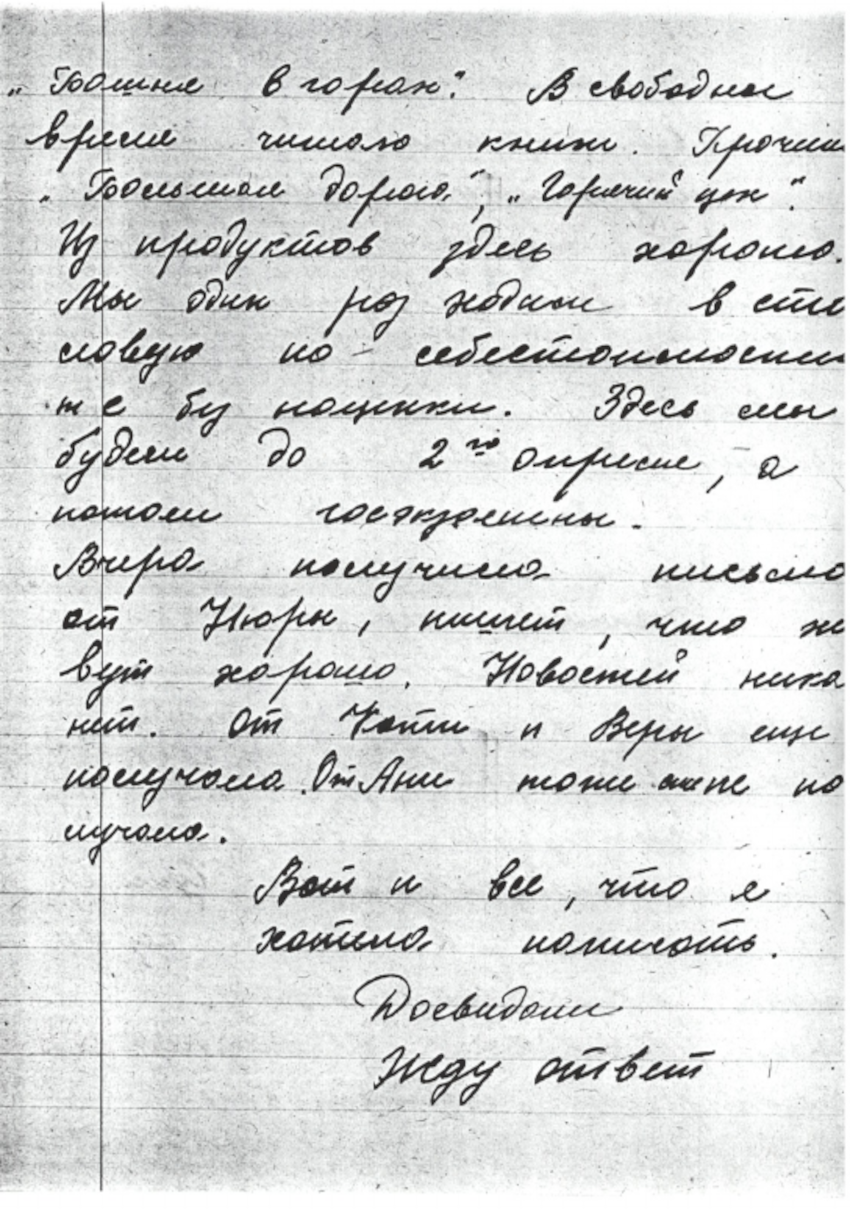 „Башня в горах“. В свободное
время читаю книги. Прочит
„Большая дорога“, „Горячий цех“.
Из продуктов здесь хорошо.
Мы один раз ходили в сто
ловую по себестоимости
т е без наценки. Здесь мы
будем до 2го апреля, а
потом госэкзамены.
Вчера получила письмо
от Нюры, пишет, что жи
вут хорошо. Новостей ника
нет. От Кати и Веры еще
получала. От Ани тоже не по
лучала.
Вот и все, что я
хотела написать.
Досвидани
Жду ответ